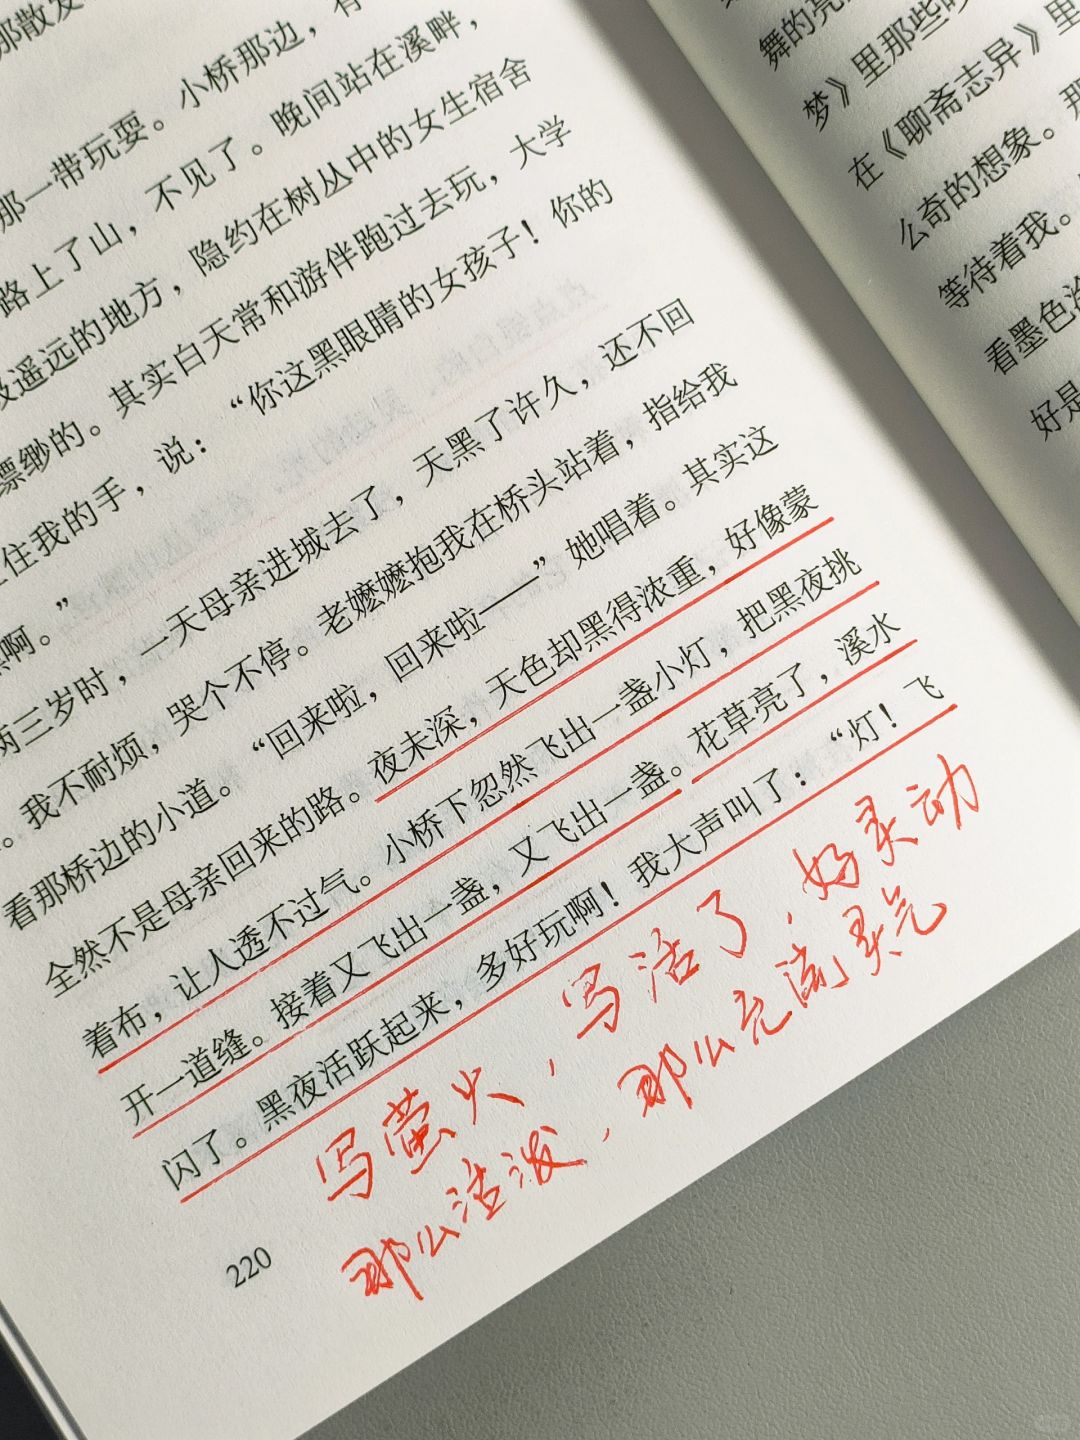 那散发
那一带玩耍。小桥那边，有
路上了山，不见了。晚间站在溪畔，
遥远的地方，隐约在树丛中的女生宿舍
缥缈的。其实白天常和游伴跑过去玩，大学
住我的手，说：“你这黑眼睛的女孩子！你的
啊。”
两三岁时，一天母亲进城去了，天黑了许久，还不回
。我不耐烦，哭个不停。老嬷嬷抱我在桥头站着，指给我
看那桥边的小道。“回来啦，回来啦——”她唱着。其实这
全然不是母亲回来的路。夜未深，天色却黑得浓重，好像蒙
着布，让人透不过气。小桥下忽然飞出一盏小灯，把黑夜挑
开一道缝。接着又飞出一盏，又飞出一盏。花草亮了，溪水
闪了。黑夜活跃起来，多好玩啊！我大声叫了：“灯！飞
写萤火，写活了，好灵动
那么活泼，那么充满灵气
220
舞的亮
梦》里那些
在《聊斋志异》里
么奇的想象。那
等待着我。
看墨色
好是